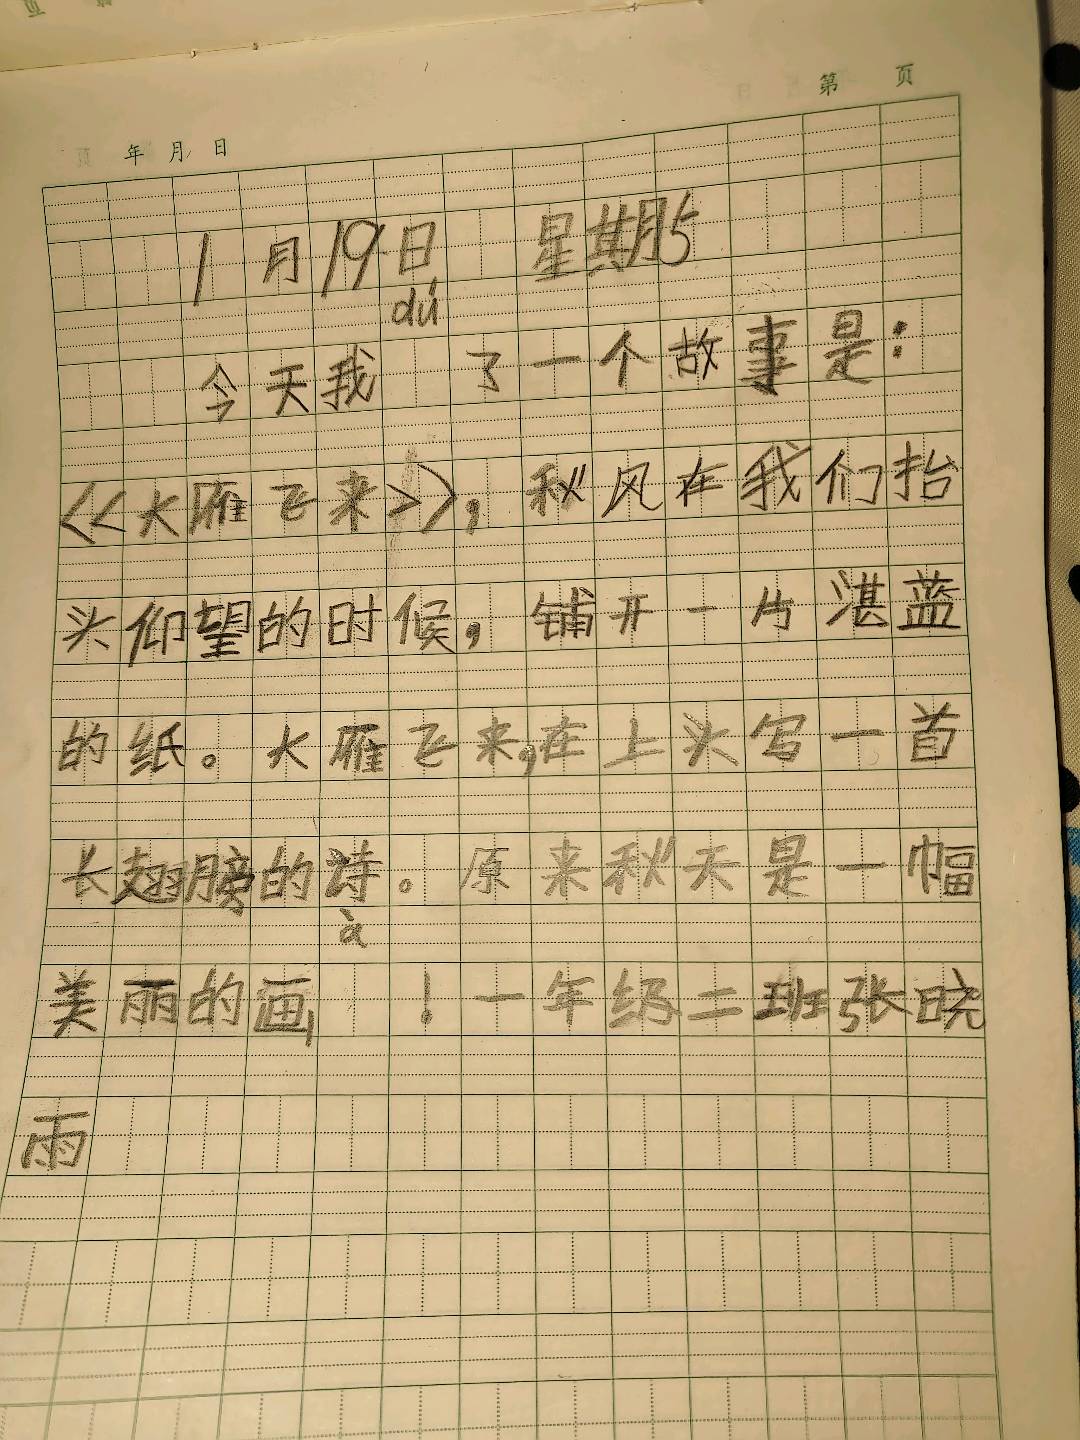 第 页
年 月 日
1月19日 星期5
dú
今天我 了一个故事是：
<<大雁飞来>>，秋风在我们抬
头仰望的时候，铺开一片湛蓝
的纸。大雁飞来，在上头写一首
长翅膀的诗。原来秋天是一幅
à
美丽的画 ！一年级二班张晓
雨